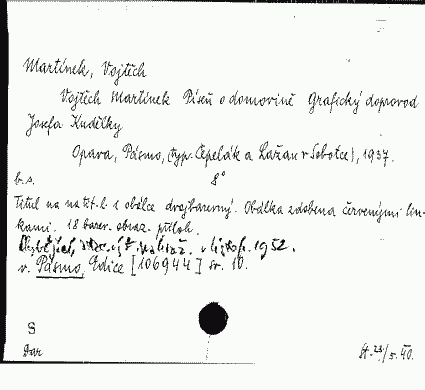 Martínek, Vojtěch
Vojtěch Martínek Píseň o domovině Grafický doprovod
Josefa Kudělky
Opava, Pásmo, (typ. Čepelák a Lažan v Sobotce), 1937.
b. s. 8°
Titul na na tit. l. i obálce dvojbarevný. Obálka zdobena červenými lin-
kami. 18 barev. obraz. příloh.
1952.
v. Pásmo, Edice [106944] sv. 10.
S
Dar St. 23./5. 40.